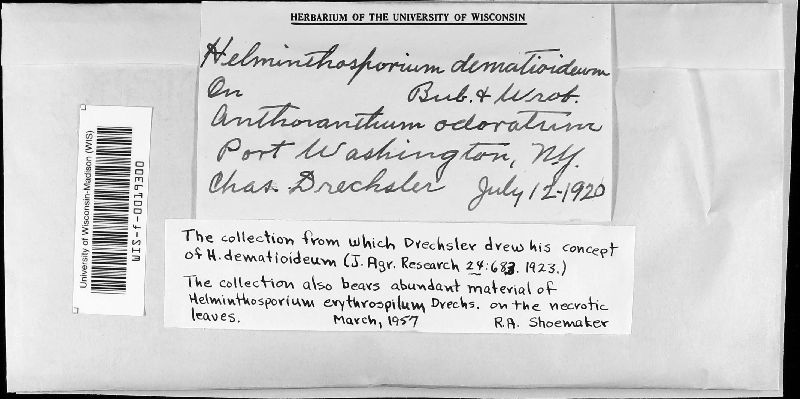 HERBARIUM OF THE UNIVERSITY OF WISCONSIN
Helminthosporium dematioideum
On Bub. & Wrob.
Anthoxanthum odoratum
Port Washington, NY.
Chas. Drechsler July 12-1920
University of Wisconsin-Madison (WIS)
WIS-f-0019300
The collection from which Drechsler drew his concept
of H. dematioideum (J. Agr. Research 24:683. 1923.)
The collection also bears abundant material of
Helminthosporium erythrospilum Drechs. on the necrotic
leaves. March, 1957 R.A. Shoemaker